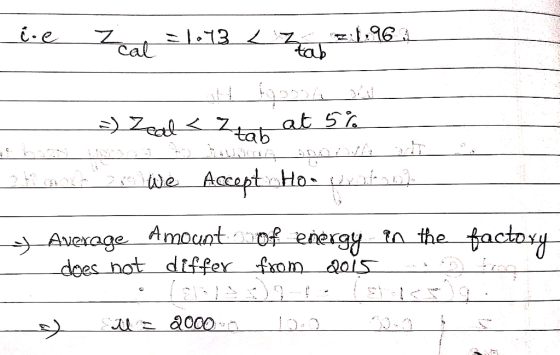 i.e Z cal = 1.73 < Z tab = 1.96.
=) Zcal < Z tab at 5%
We Accept Ho.
=) Average Amount of energy in the factory
does not differ from 2015
=) μ = 2000